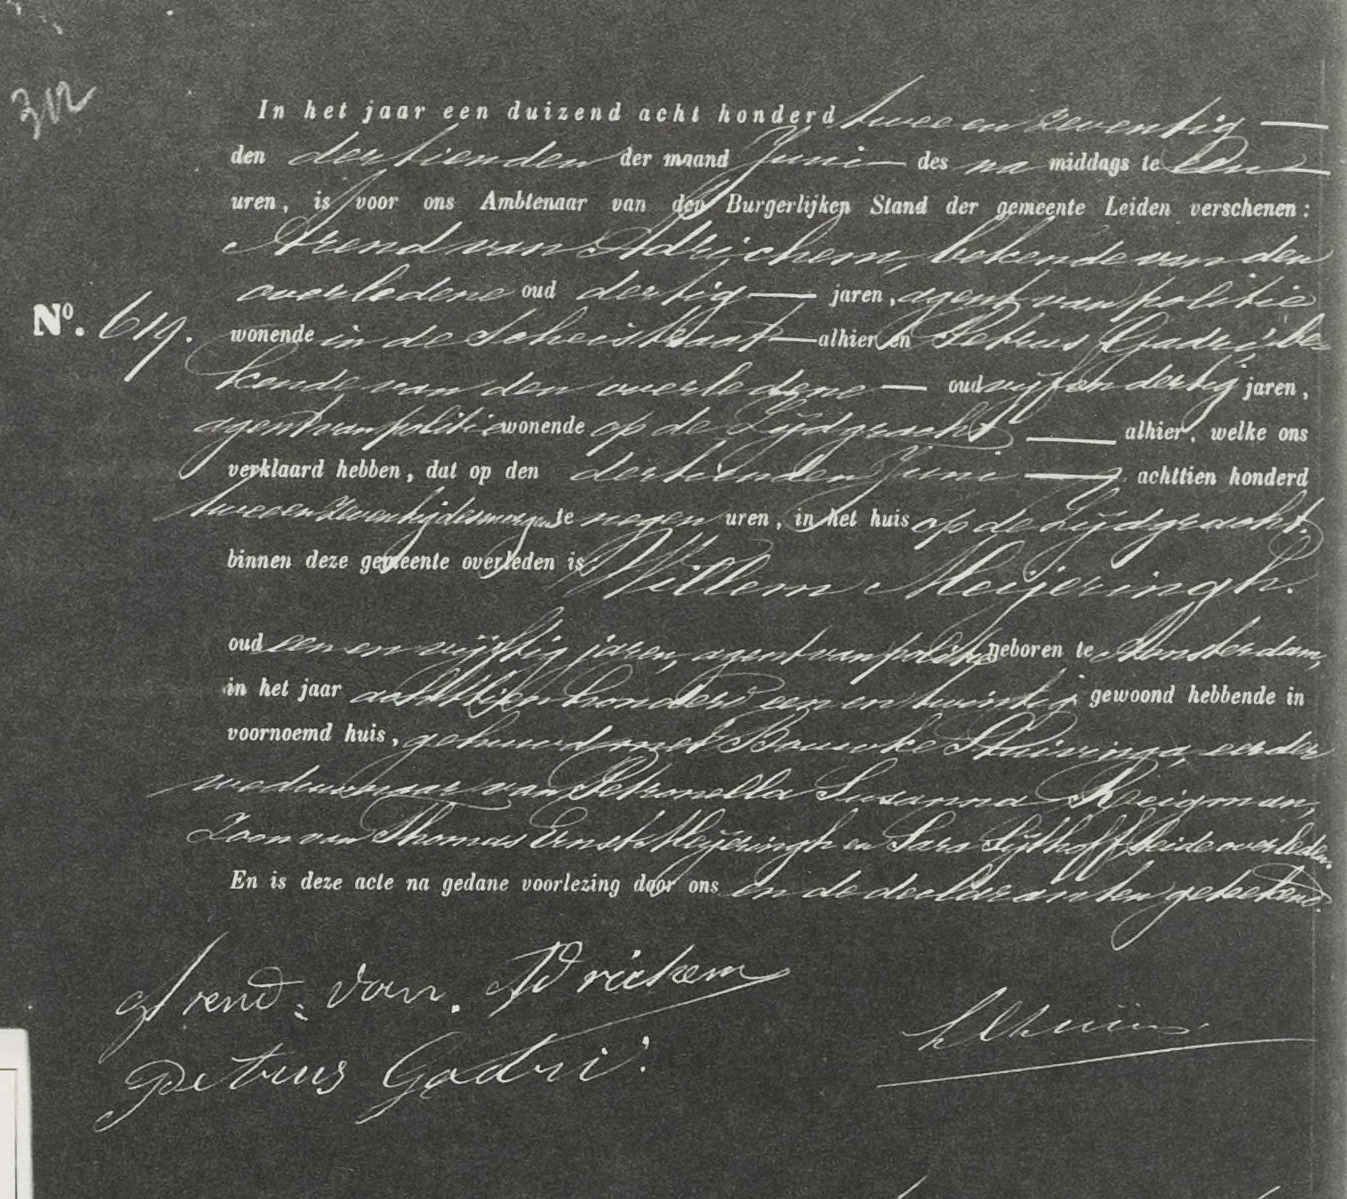 312
In het jaar een duizend acht honderd twee en zeventig
den dertienden der maand Juni des na middags te een
uren, is voor ons Ambtenaar van den Burgerlijken Stand der gemeente Leiden verschenen:
Arend van Adrichem, bekende van den
overledene oud dertig jaren, agent van politie
No. 619. wonende in de Scheistraat alhier en Petrus Gadri, be-
kende van den overledene oud vijf en dertig jaren,
agent van politie wonende op de Zijdgracht alhier, welke ons
verklaard hebben, dat op den dertienden Juni achttien honderd
twee en zeventig des morgens te negen uren, in het huis op de Zijdgracht
binnen deze gemeente overleden is: Willem Meijeringh.
oud een en vijftig jaren, agent van politie geboren te Amsterdam,
in het jaar achttien honderd een en twintig gewoond hebbende in
voornoemd huis, gehuwd met Bouwke Stuivinga, eerder
weduwnaar van Petronella Susanna Reigman,
Zoon van Thomas Ernst Meijeringh en Sara Sijthoff, beide overleden.
En is deze acte na gedane voorlezing door ons en de declaranten geteekend.
Arend van Adrichem
Petrus Gadri